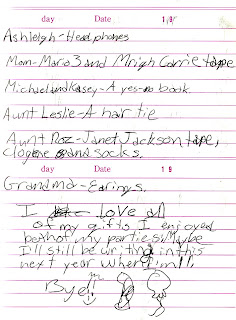 day Date 19
Ashleigh-Headphones
Mom-Mario 3 and Carrie tape
Michael and Kasey-A yes-no book
Aunt Leslie-A hair tie
Aunt Roz-Janet Jackson tape,
and socks.
day Date 19
Grandma-Earings.
I love all
of my gifts I enjoyed
both of my parties! Maybe
I'll still be writing in this
next year when I'm 11!
Bye!!